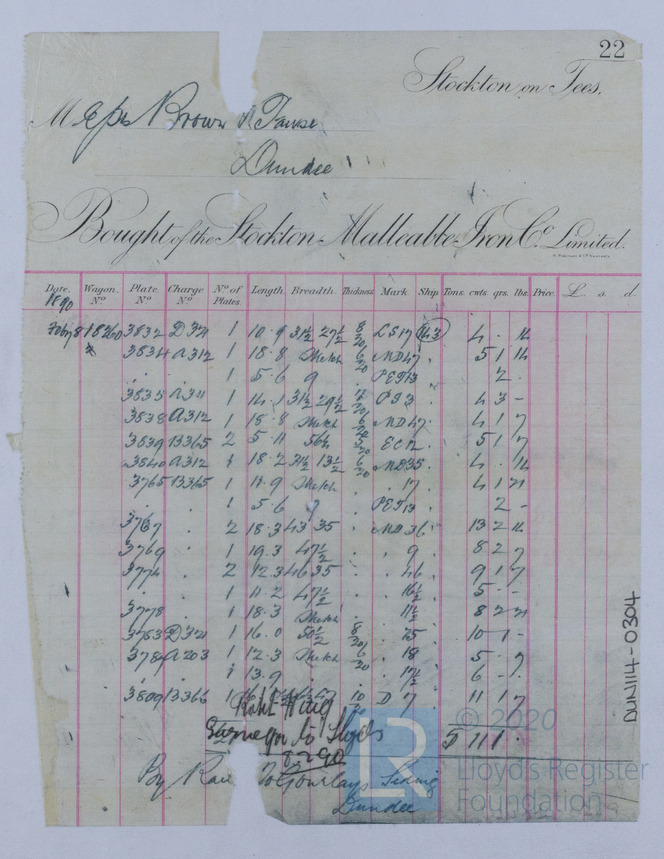 22
Stockton on Tees,
Messrs Brown &
Dundee
Bought of the Stockton Malleable Iron Co. Limited.
Date. Wagon. No Plate. No Charge No No of Plates. Length. Breadth. Thickness. Mark Ship Tons. cwts. qrs. lbs. Price. £ s. d.
1890
18260 3832 D321 1 10.9 31½ 27½ 8/20 LS17 4 . 14
3834 A312 1 18.8 Sketch 6/20 MD47 . 5 1 14
. . 1 5.6 9 . PET13 2 .
3835 1 14.1 31½ 29½ 4 3 -
3838 A312 1 18.8 Sketch MD47 . 4 1 7
3839 13365 2 5.11 EC12 5 1 7
3840 A312 1 18.2 31½ 13½ 6/20 MD35 4 . 14
3765 13365 1 Sketch . 17 . 4 1 21
. . 1 5.6 . PET13 2 -
3767 . 2 18.3 43 35 . MD36 . 13 2 14
3769 . 1 19.3 47½ . 9 . 8 2 7
3774 . 2 12.3 46 35 . 46 . 9 1 7
. . 1 11.2 47½ . 16½ 5 . -
3778 . 1 18.3 Sketch . 11½ 8 2 21
3783 D321 1 16.0 50½ 8/20 . 25 10 1 -
A203 1 12.3 Sketch 6/20 . 18 5 .
. . 1 13.9 . 17½ 6 - .
3809 13366 1 10 D 17 11 1 7
Robt Haig
Surveyor to Lloyds
8.2.90
5 11 1 .
By Rail To Gourlays Siding
Dundee
DUN114-0304
LR
© 2020
Lloyd's Register
Foundation